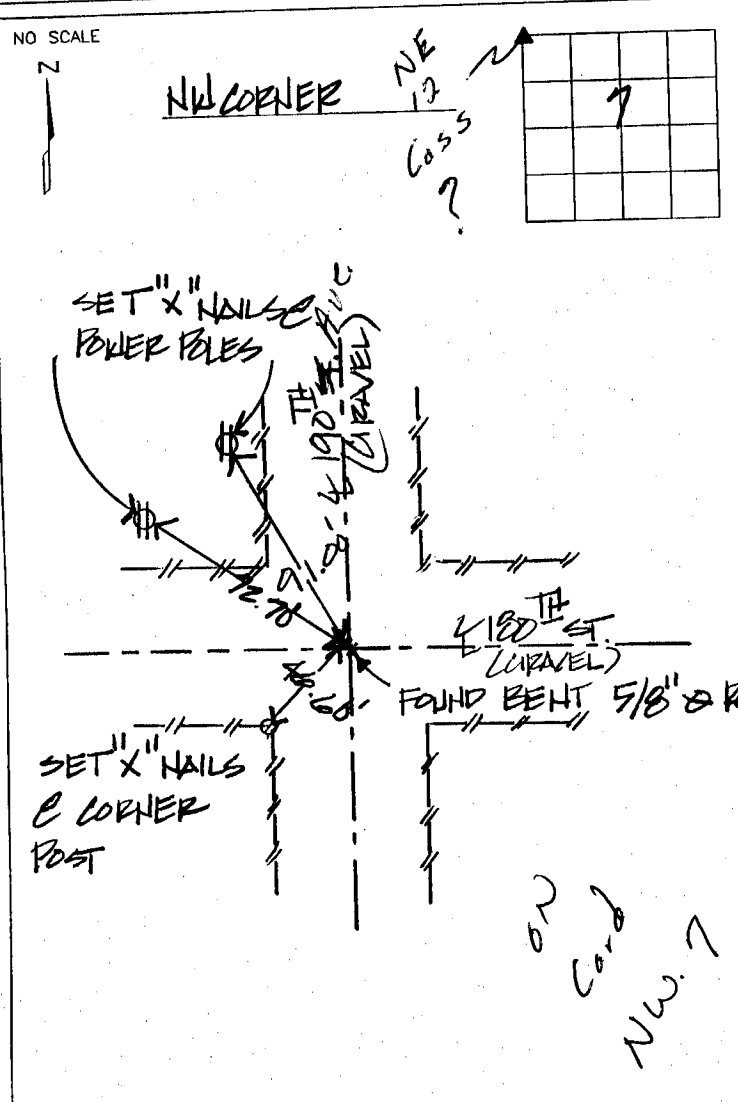 NO SCALE
N
NW CORNER
NE
12
Cass
?
7
SET "X" NAILS @
POWER POLES
190TH
AVE
(GRAVEL)
72.76
℄ 180TH ST.
(GRAVEL)
FOUND BENT 5/8" Ø
SET "X" NAILS
@ CORNER
POST
ON
Card
NW. 7